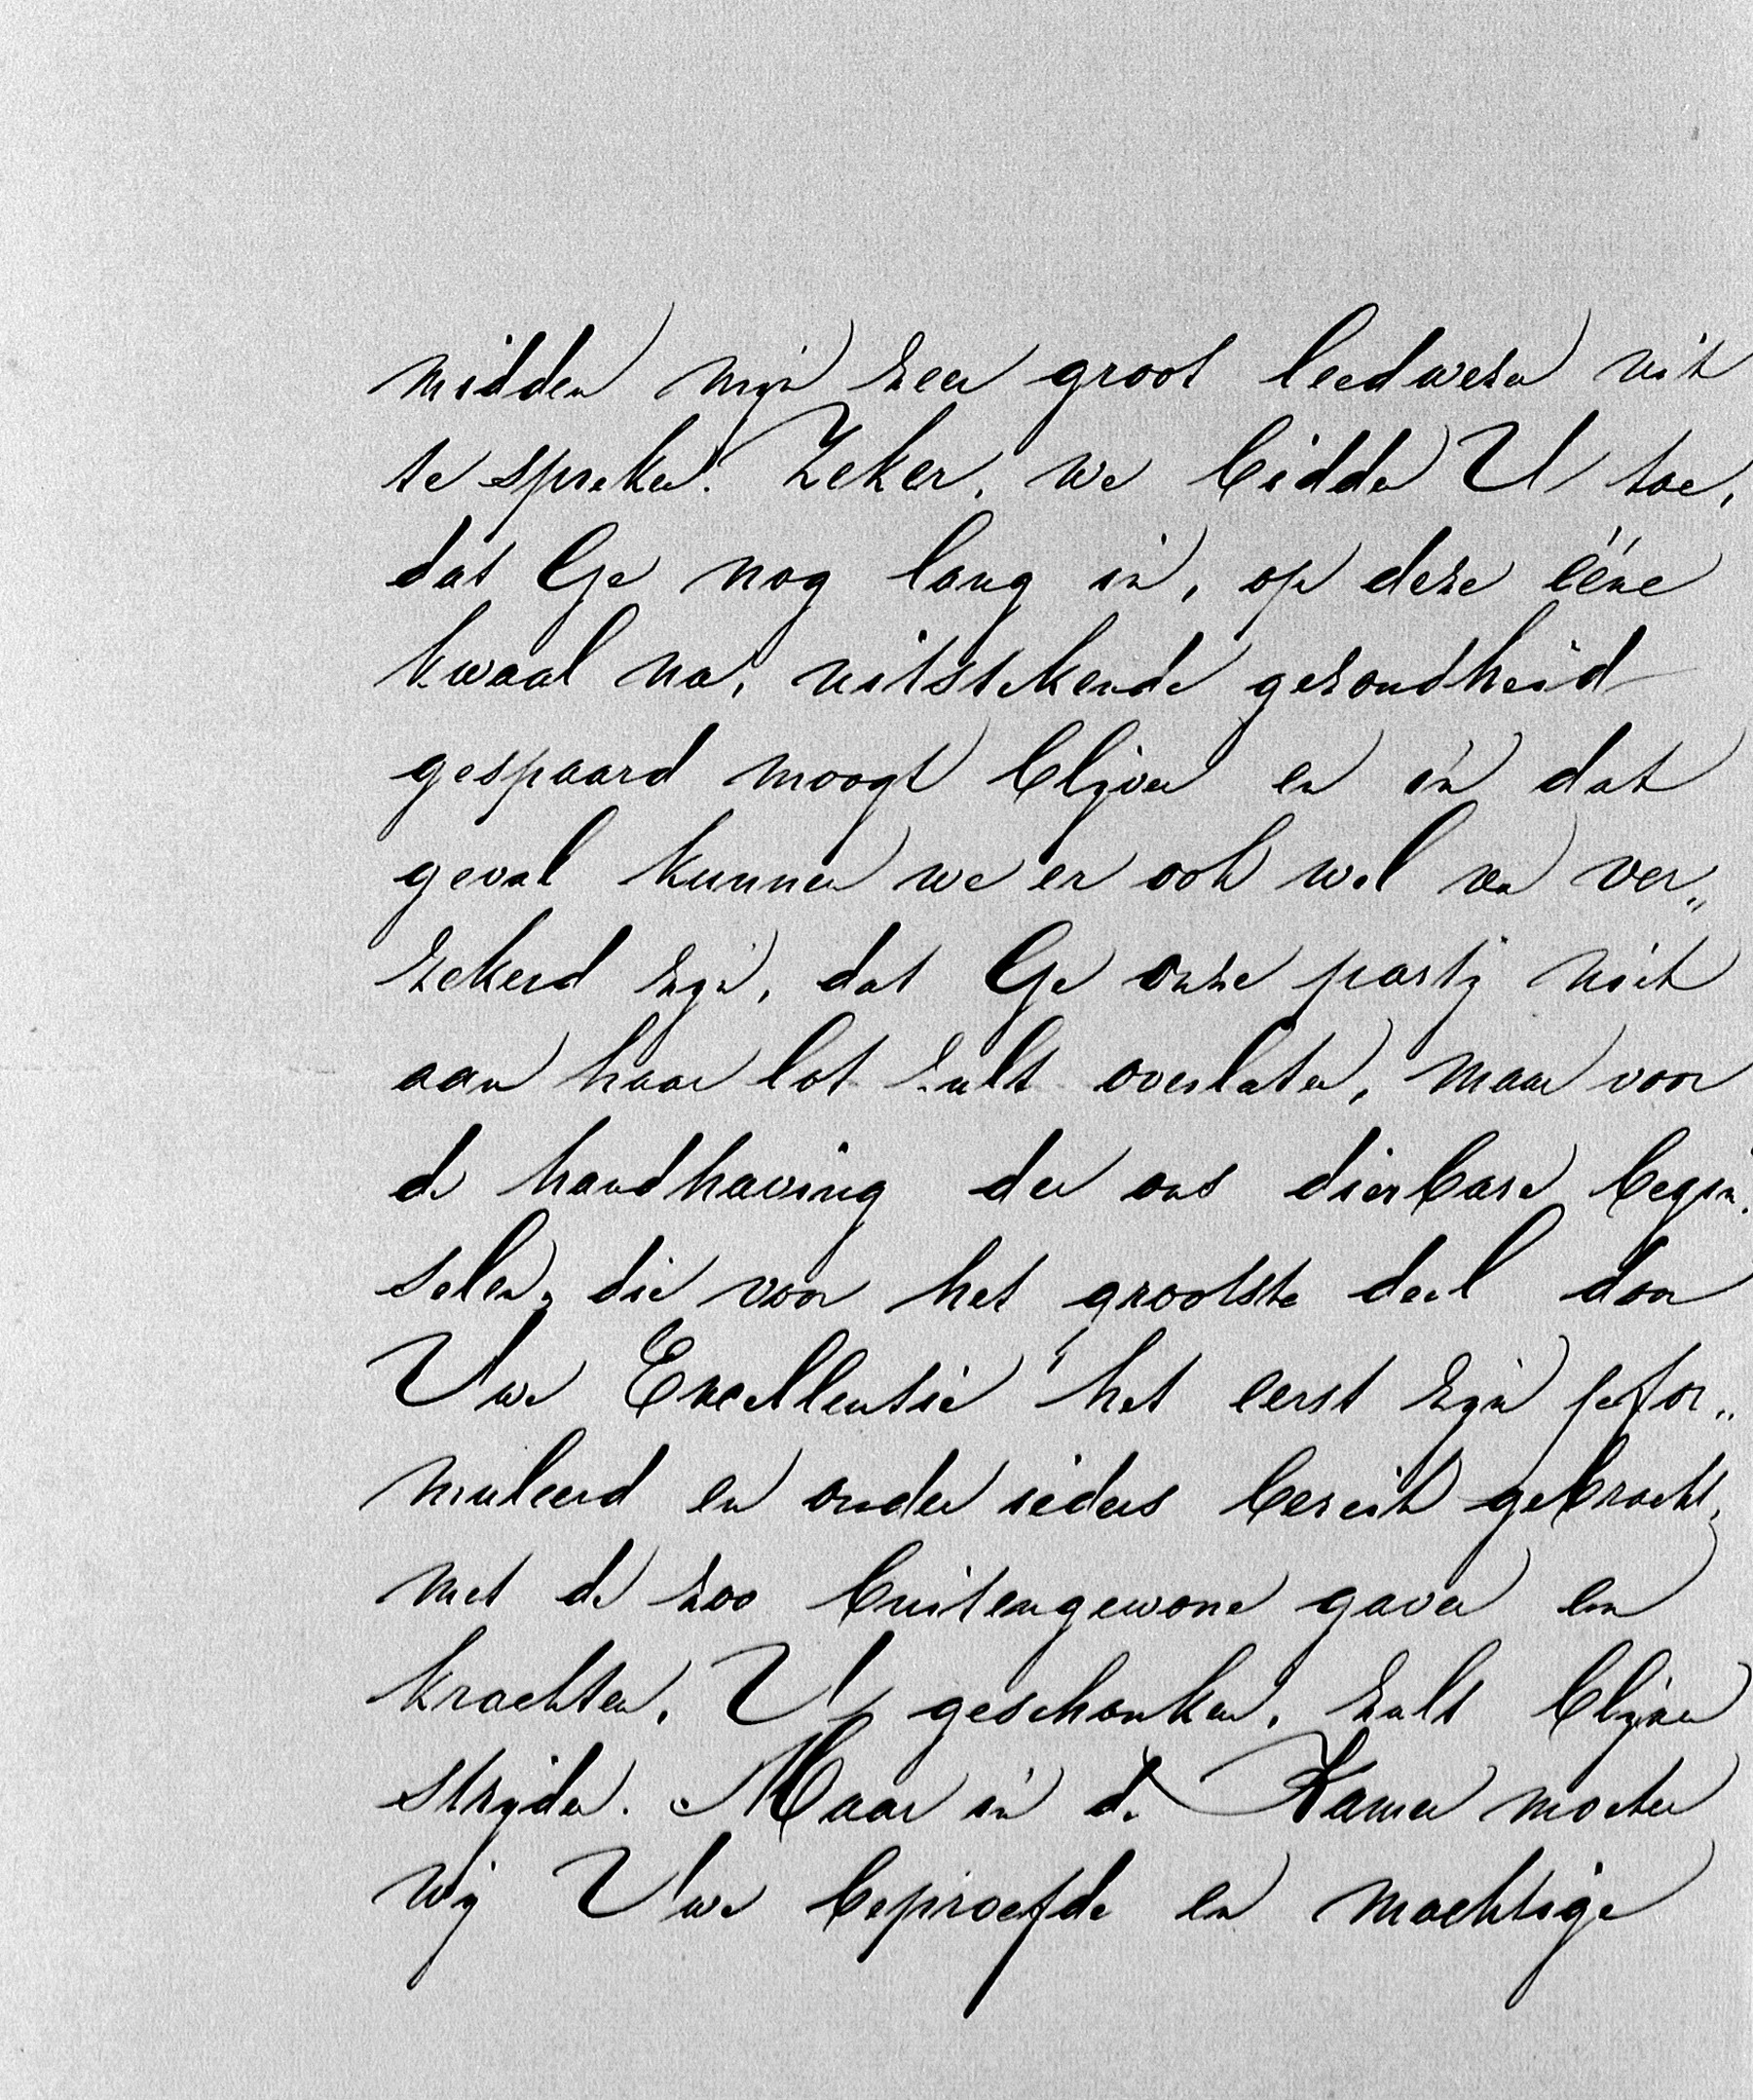 midden mijn zeer groot leedwezen uit
te spreken. Zeker, we bidden U toe,
dat Ge nog lang in, op deze ééne
kwaal na, uitstekende gezondheid
gespaard moogt blijven en in dat
geval kunnen we er ook wel van ver„
zekerd zijn, dat Ge onze partij niet
aan haar lot zult overlaten, maar voor
de handhaving der ons dierbare begin„
selen, die voor het grootste deel door
Uwe Excellentie het eerst zijn gefor„
muleerd en onder ieders bereik gebracht,
met de zoo buitengewone gaven en
krachten, U geschonken, zult blijven
strijden. Maar in de Kamer moeten
wij Uwe beproefde en machtige